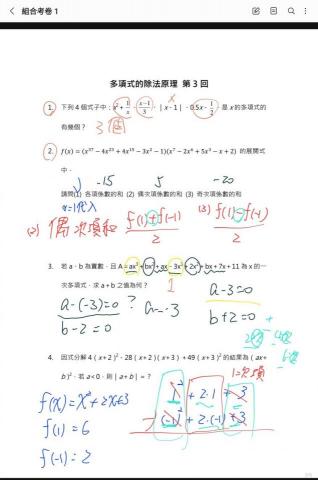 組合考卷 1
多項式的除法原理 第 3 回
1. 下列 4 個式子中：x²+1/x、(x-1)/3、|x-1|、0.5x-1/2，是 x 的多項式的
有幾個？ 3個
2. f(x)=(x³⁷-4x²³+4x¹⁵-3x²-1)(x⁷-2x⁶+5x³-x+2) 的展開式
中，
-15 5 -20
請問(1) 各項係數的和 (2) 偶次項係數的和 (3) 奇次項係數的和
x=1代入
(2) 偶次項和 f(1)+f(-1)/2 (3) f(1)-f(-1)/2
3. 若 a、b 為實數，且 A=ax²+bx³+ax-3x³+2x²+bx+7x+11 為 x 的一
次多項式，求 a+b 之值為何？
1
a-(-3)=0 ? a=-3 a-3=0
b-2=0 b+2=0
4. 因式分解 4(x+2)²-28(x+2)(x+3)+49(x+3)² 的結果為 (ax+
b)²，若 a<0，則 |a+b|=？
f(x)=x²+2x+3 1²+2·1+3
f(1)=6 (-1)²+2·(-1)+3
f(-1)=2